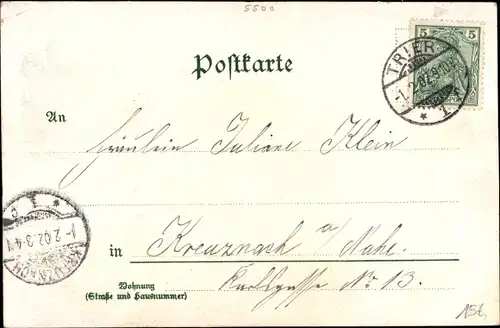 5500
5 5
Postkarte
TRIER
-1.2.02.9-10V.
* 1
An
Fräulein Juliane Klein
1-2.02.3-4N
KREUZNACH
in Kreuznach a/ Nahe.
Wohnung
(Straße und Hausnummer)
Karlsgasse No 13.
15t.